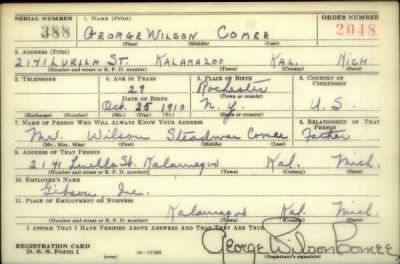 SERIAL NUMBER 1. NAME (Print) ORDER NUMBER
388 GEORGE WILSON COMEE 2048
(First) (Middle) (Last)
2. ADDRESS (Print)
2141 LUELLA ST. KALAMAZOO KAL. MICH.
(Number and street or R. F. D. number) (Town) (County) (State)
3. TELEPHONE 4. AGE IN YEARS 5. PLACE OF BIRTH 6. COUNTRY OF CITIZENSHIP
29 Rochester
DATE OF BIRTH (Town or county)
Oct. 25 1910 N.Y. U.S.
(Exchange) (Number) (Mo.) (Day) (Yr.) (State or country)
7. NAME OF PERSON WHO WILL ALWAYS KNOW YOUR ADDRESS 8. RELATIONSHIP OF THAT PERSON
Mr. Wilson Steadman Comee Father
(Mr., Mrs., Miss) (First) (Middle) (Last)
9. ADDRESS OF THAT PERSON
2141 Luella St. Kalamazoo Kal. Mich.
(Number and street or R. F. D. number) (Town) (County) (State)
10. EMPLOYER'S NAME
Gibson Inc.
11. PLACE OF EMPLOYMENT OR BUSINESS
Kalamazoo Kal. Mich.
(Number and street or R. F. D. number) (Town) (County) (State)
I AFFIRM THAT I HAVE VERIFIED ABOVE ANSWERS AND THAT THEY ARE TRUE.
REGISTRATION CARD
D. S. S. Form 1 16—17105 George Wilson Comee
(over)